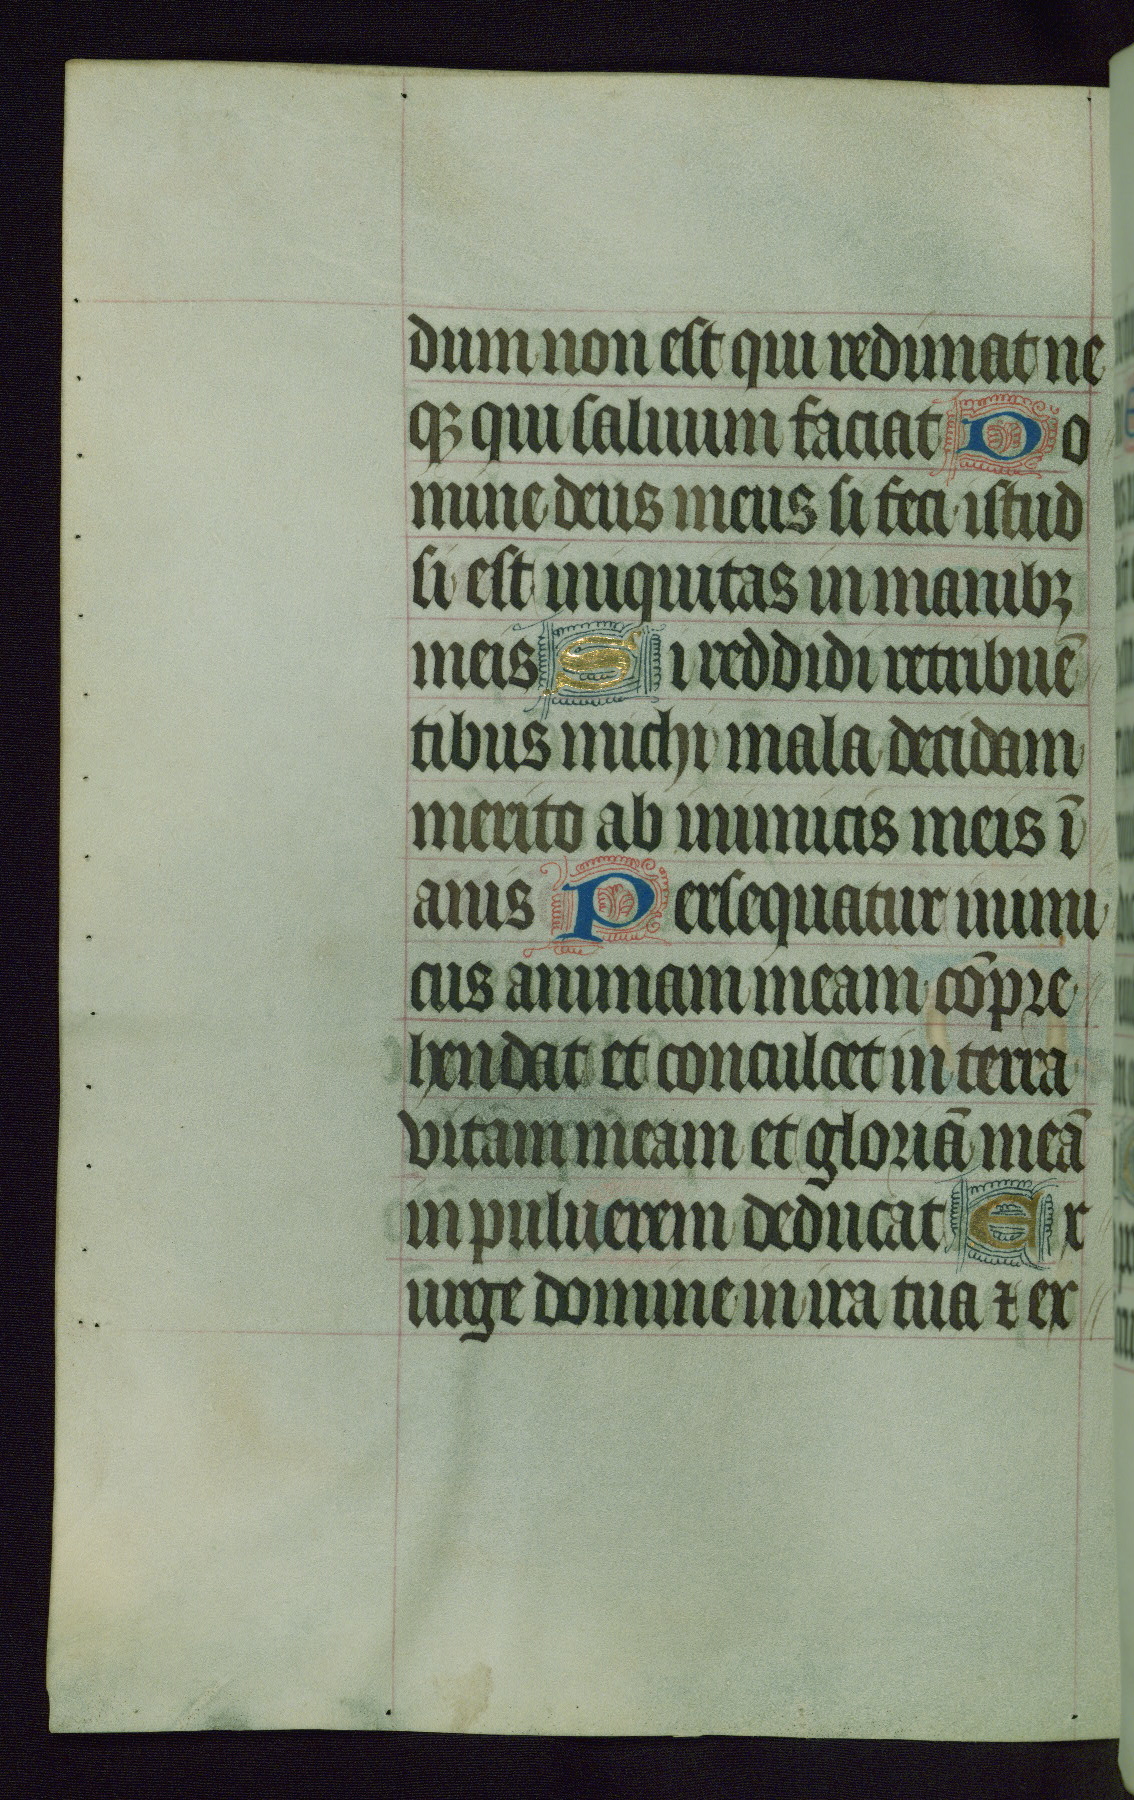 dum non est qui redimat ne
qꝫ qui saluum faciat Do
mine deus meus si feci istud
si est iniquitas in manibꝫ
meis Si reddidi retribuē
tibus michi mala decidam
merito ab inimicis meis ī
anis Persequatur inimi
cus animam meam cōpre
hendat et conculcet in terra
vitam meam et gloriā meā
in puluerem deducat Ex
urge domine in ira tua ⁊ ex